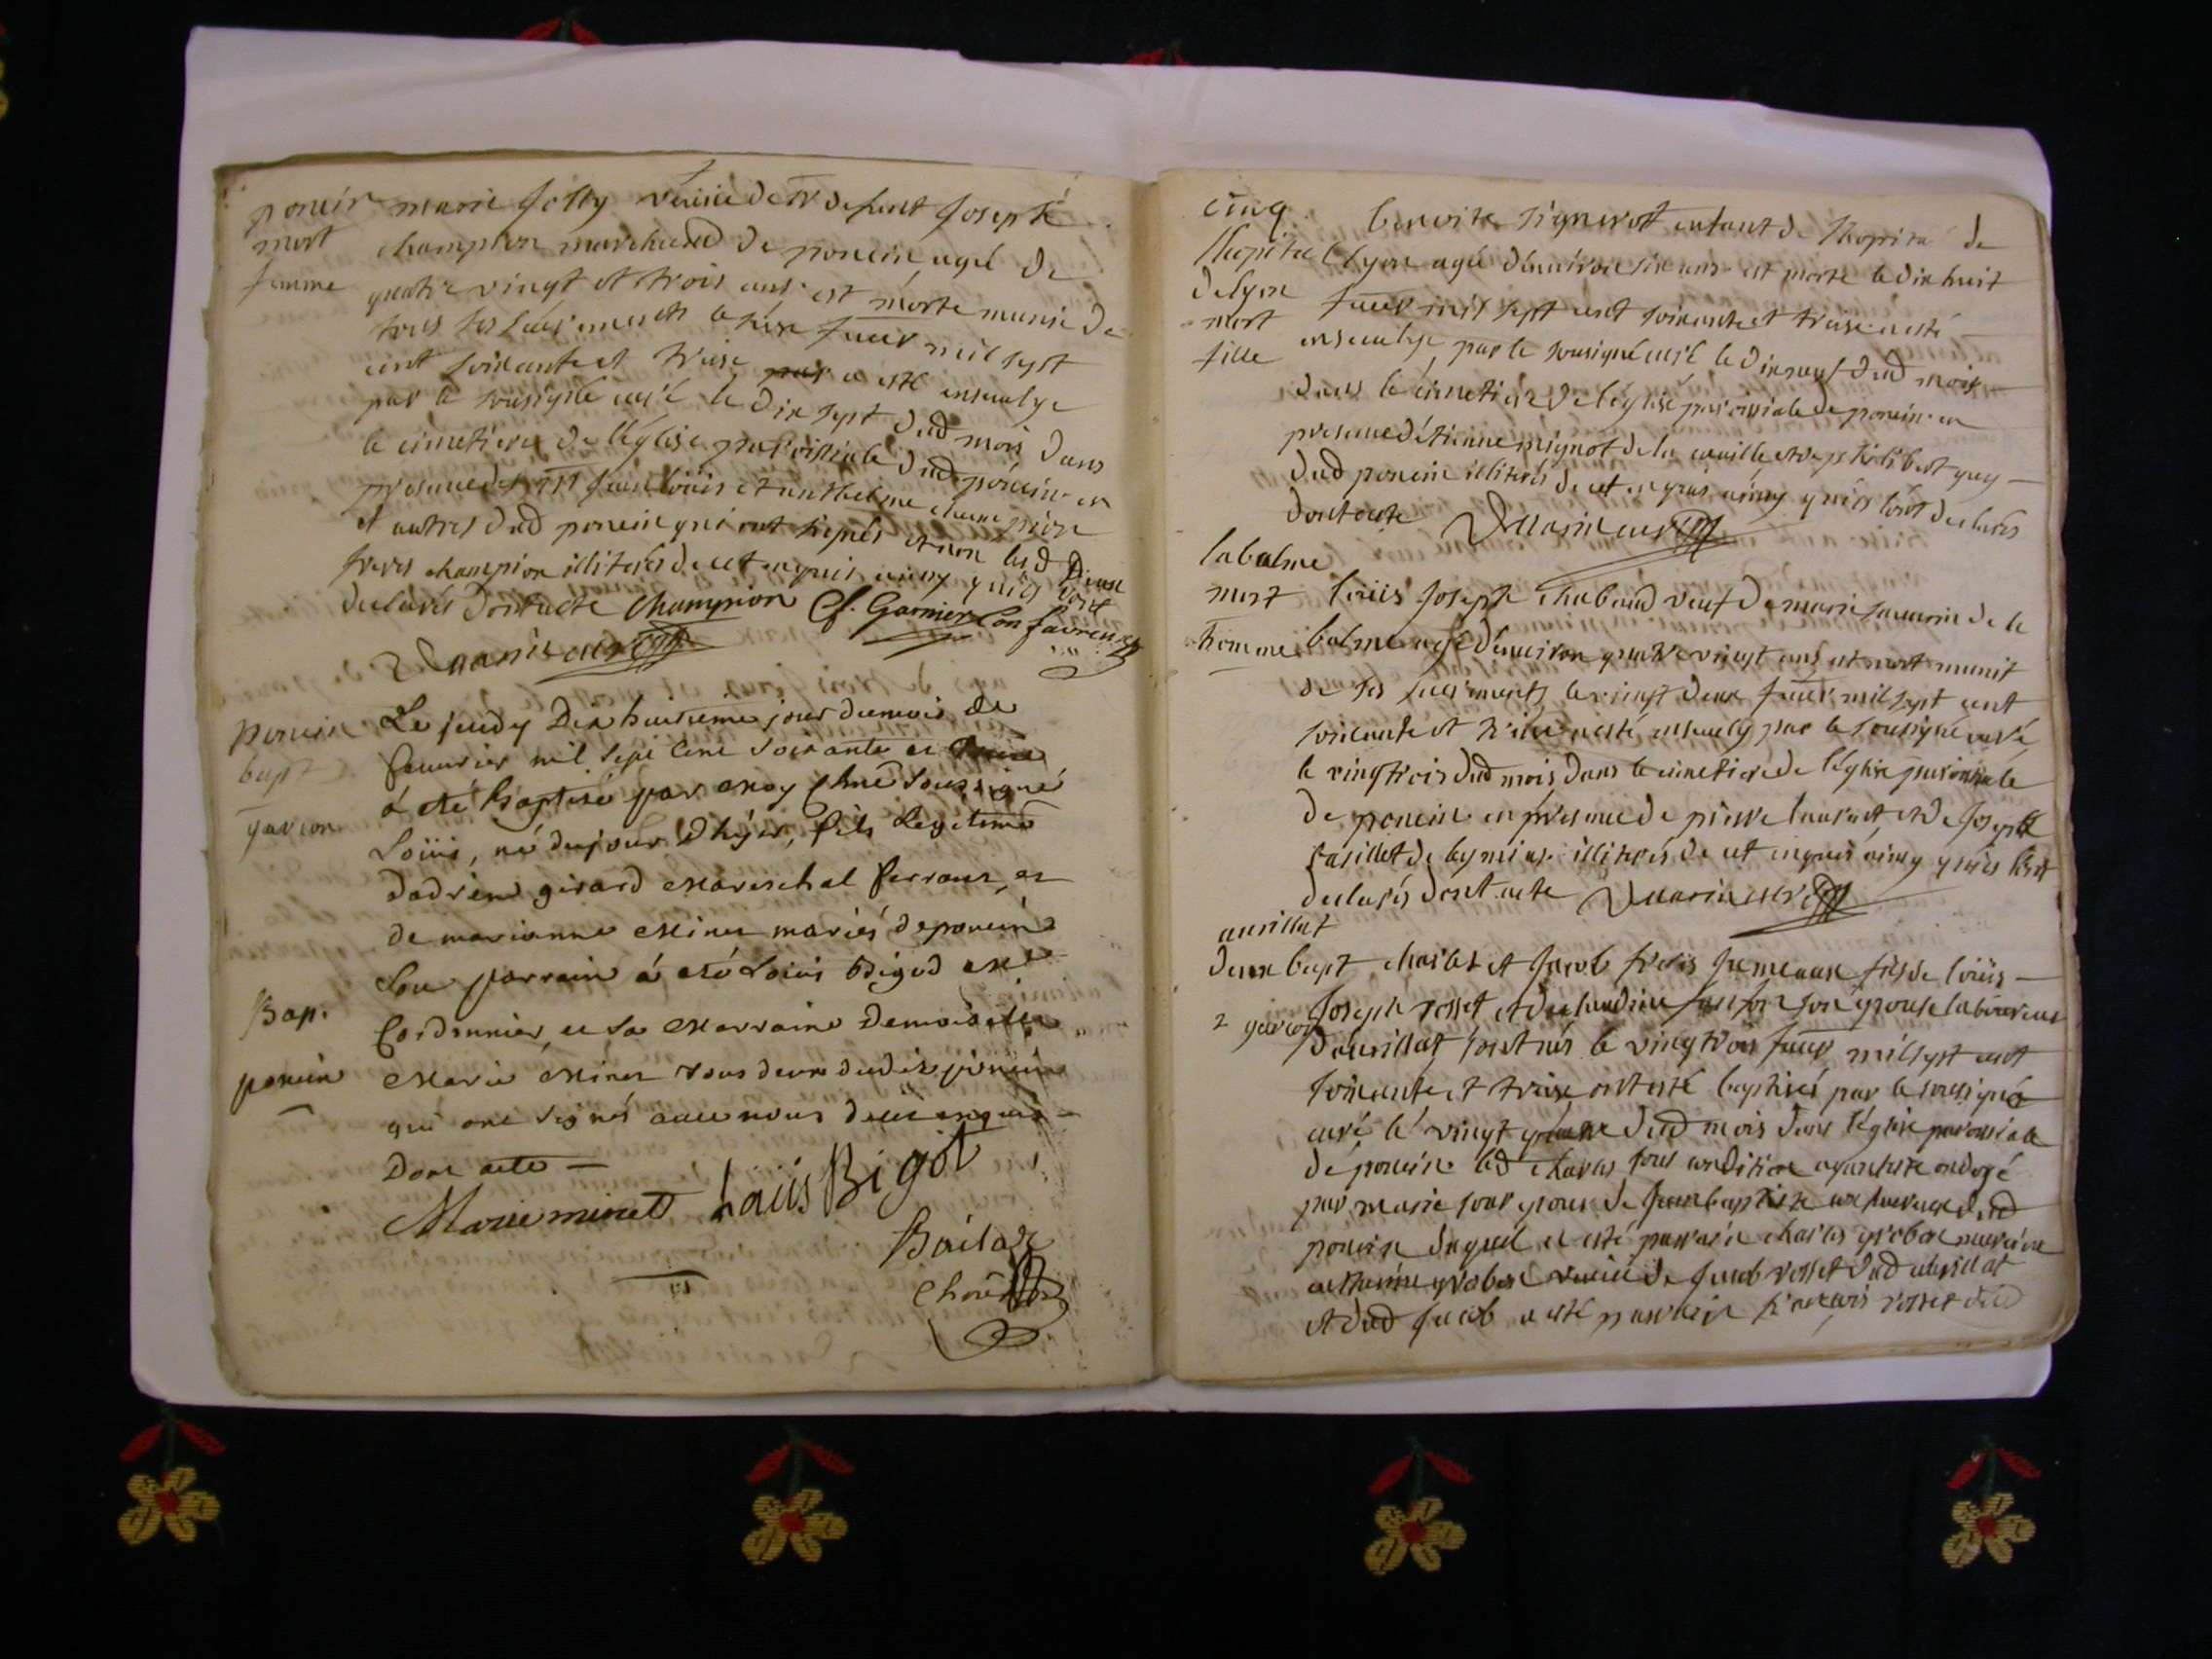 poncin marie Jolly veuve de Sr defunt Joseph
mort champion marchand de poncin agé de
femme quatre vingt et trois ans est morte munie de
tous les sacrements le seize feuer mil sept
cent soixante et treize par a esté ensevelye
par le sousigné curé le dix sept dud mois dans
le cimetiere de léglise parroissiale dud poncin en
presence de Jean louis et anthelme champion
et autres dud poncin qui ont signés et non lesd
freres champion illiterés de ce enquis ainsy quils sont
declarés dont acte Champion Cf. Garnier
curé
poncin Le jeudy Dix huitieme jour du mois de
bapt feuvrier mil sept cent soixante et treize
garcon á été Baptisé par moy soussigné
Loüis, né du jour d'hyer, fils Legitime
dadrien girard Mareschal ferrant, et
de marianne Minet mariés deponcin
Son parrain á été Loüis Bigod Me
Bap. Cordonnier, et sa Marraine Demoiselle
poncin Marie Minet tous deux dudit poncin
qui ont signés avec nous de ce enquis
Dont acte —
Marie minet Loüis Bigot
cinq. benoite signerot enfant de lhopital de
lhopital lyon agée d'environ six ans est morte le dix huit
de lyon feuer mil sept cent soixante et treize a esté
mort ensevelye par le sousigné curé le dix neuf dud mois
fille dans le cimetiere de léglise parroissiale de poncin en
presence détienne mignot de la et de philibert guy
dud poncin illiterés de ce enquis ainsy quils sont declarés
dont acte curé
labalme
mort loüis Joseph chaboud veuf de marie de la
homme balme agé d'environ quatre vingt ans est mort munit
de ses sacrements le vingt deux feuer mil sept cent
soixante et treize a esté ensevely par le sousigné curé
le vingtrois dud mois dans le cimetiere de léglise parroissiale
de poncin en presence de pierre laurent et de Joseph
de leymiat illiterés de ce enquis ainsy quils sont
declarés dont acte curé
aurillat
deux bapt charles et Jacob freres Jumeaux fils de loüis
Joseph rosset et de claudine son épouse laboureur
2 garcon daurillat sont nés le vingtrois feuer mil sept cent
soixante et treize ont esté baptisés par le sousigné
curé le vingt quatre dud mois dans léglise parroissiale
de poncin led charles sous condition ayant esté ondoyé
par marie épouse de Jean baptiste dud
poncin duquel a esté parrain charles maraine
veuve de Jacob rosset dud aurillat
et dud Jacob a esté parrain francois rosset dud